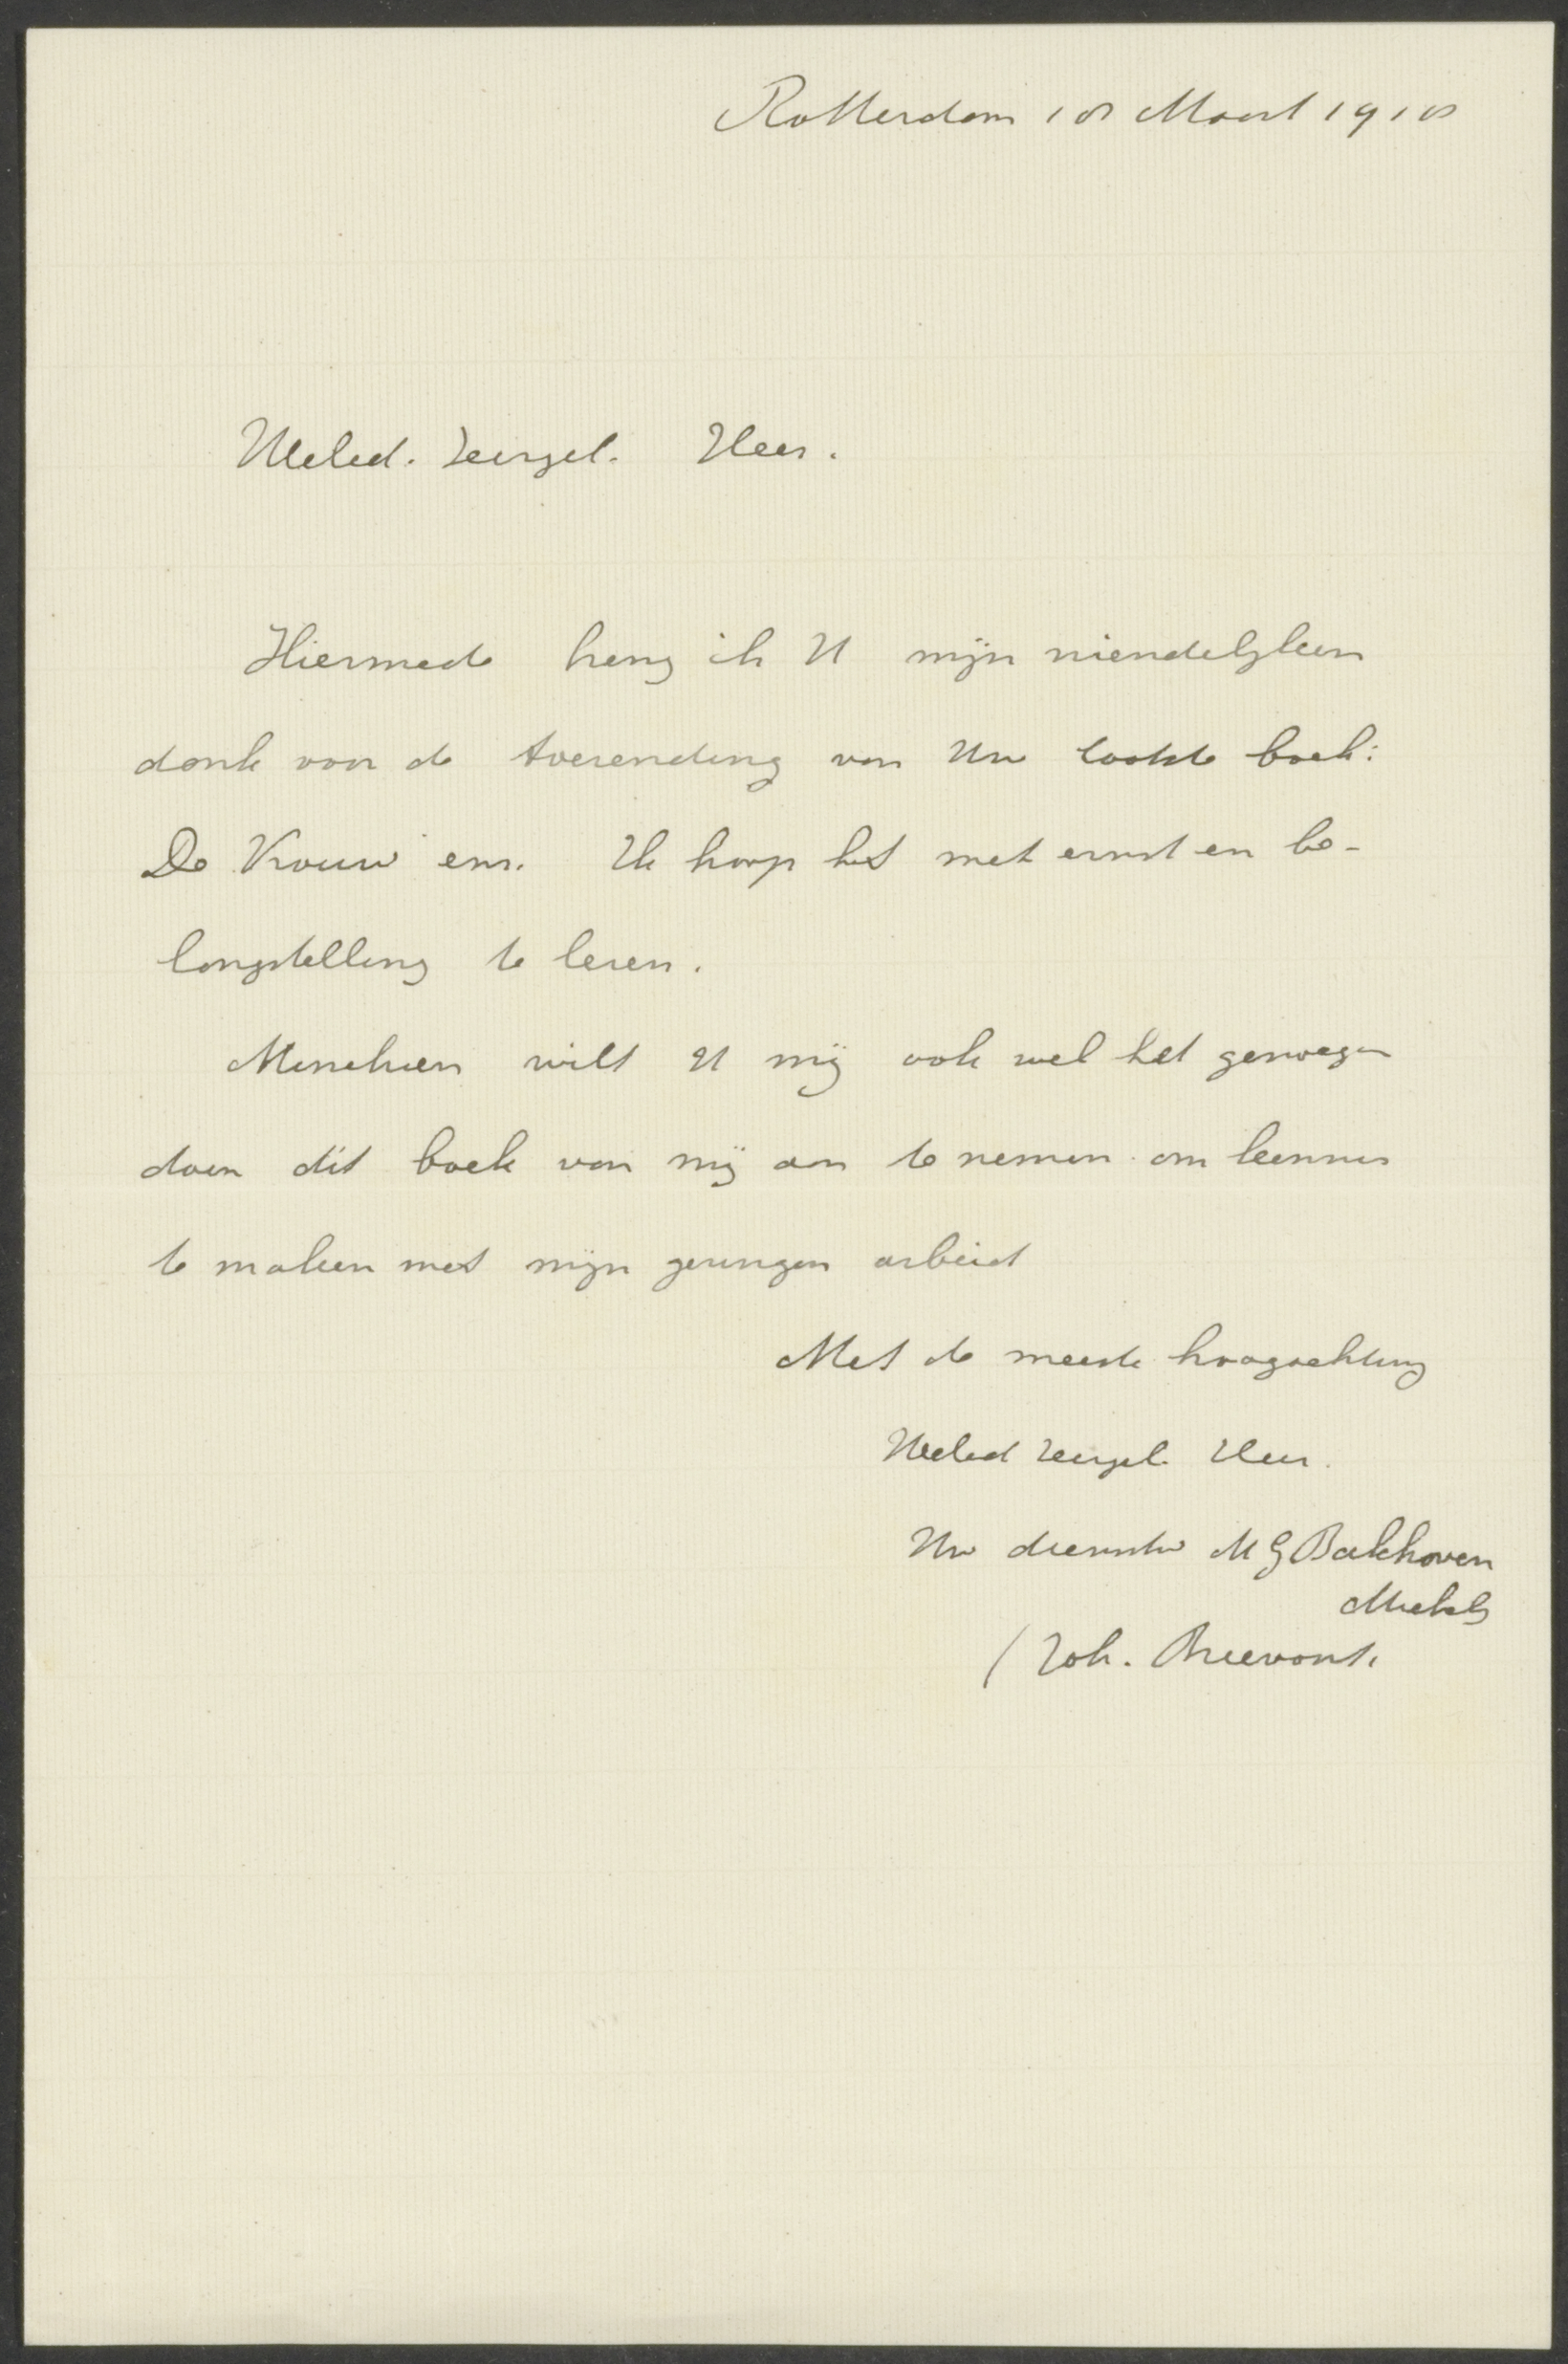 Rotterdam 18 Maart 1918
Weled. Zeergel. Heer.
Hiermede breng ik U mijn vriendelyken
dank voor de toezending van Uw laatste boek:
De Vrouw enz. Ik hoop het met ernst en be-
langstelling te lezen.
Misschien wilt U mij ook wel het genoegen
doen dit boek van mij aan te nemen om kennis
te maken met mijn geringen arbeid
Met de meeste hoogachting
Weled Zeergel. Heer.
Uw dienstw M G Bakhoven
Michels
/ Joh. Breevoort.